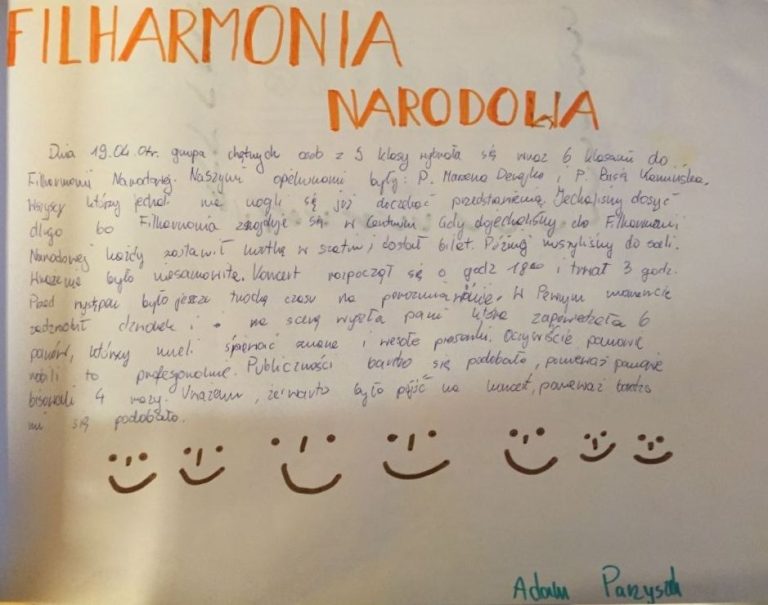 FILHARMONIA
NARODOWA
Dnia 19.04.04r. grupa chętnych osób z 5 klasy wybrała się wraz 6 klasami do
Filharmonii Narodowej. Naszymi opiekunami były: P. Marzena i P. Basia Kamińska.
Wszyscy którzy jechali nie mogli się już doczekać przedstawienia. Jechaliśmy dosyć
długo bo Filharmonia znajduje się w Centrum. Gdy dojechaliśmy do Filharmonii
Narodowej każdy zostawił kurtkę w szatni i dostał bilet. Później ruszyliśmy do sali.
Wrażenie było niesamowite. Koncert rozpoczął się o godz 18⁰⁰ i trwał 3 godz.
Przed występem było jeszcze trochę czasu na porozmawianie. W Pewnym momencie
zadzwonił dzwonek i na scenę wyszła pani która zapowiedziała 6
panów, którzy mieli śpiewać znane i wesołe piosenki. Oczywiście panowie
robili to profesjonalnie. Publiczności bardzo się podobało, ponieważ panowie
bisowali 4 razy. Uważam, że warto było pójść na koncert, ponieważ bardzo
mi się podobało.
Adam Parzyszek